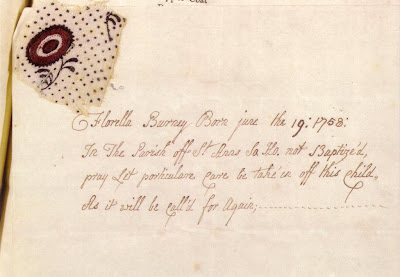 Florella Burney Born june the 19: 1758:
In The Parish off St Anns So.Ho. not Baptiz'd,
pray Let particulare Care be take'en off this Child,
As it will be call'd for Again;